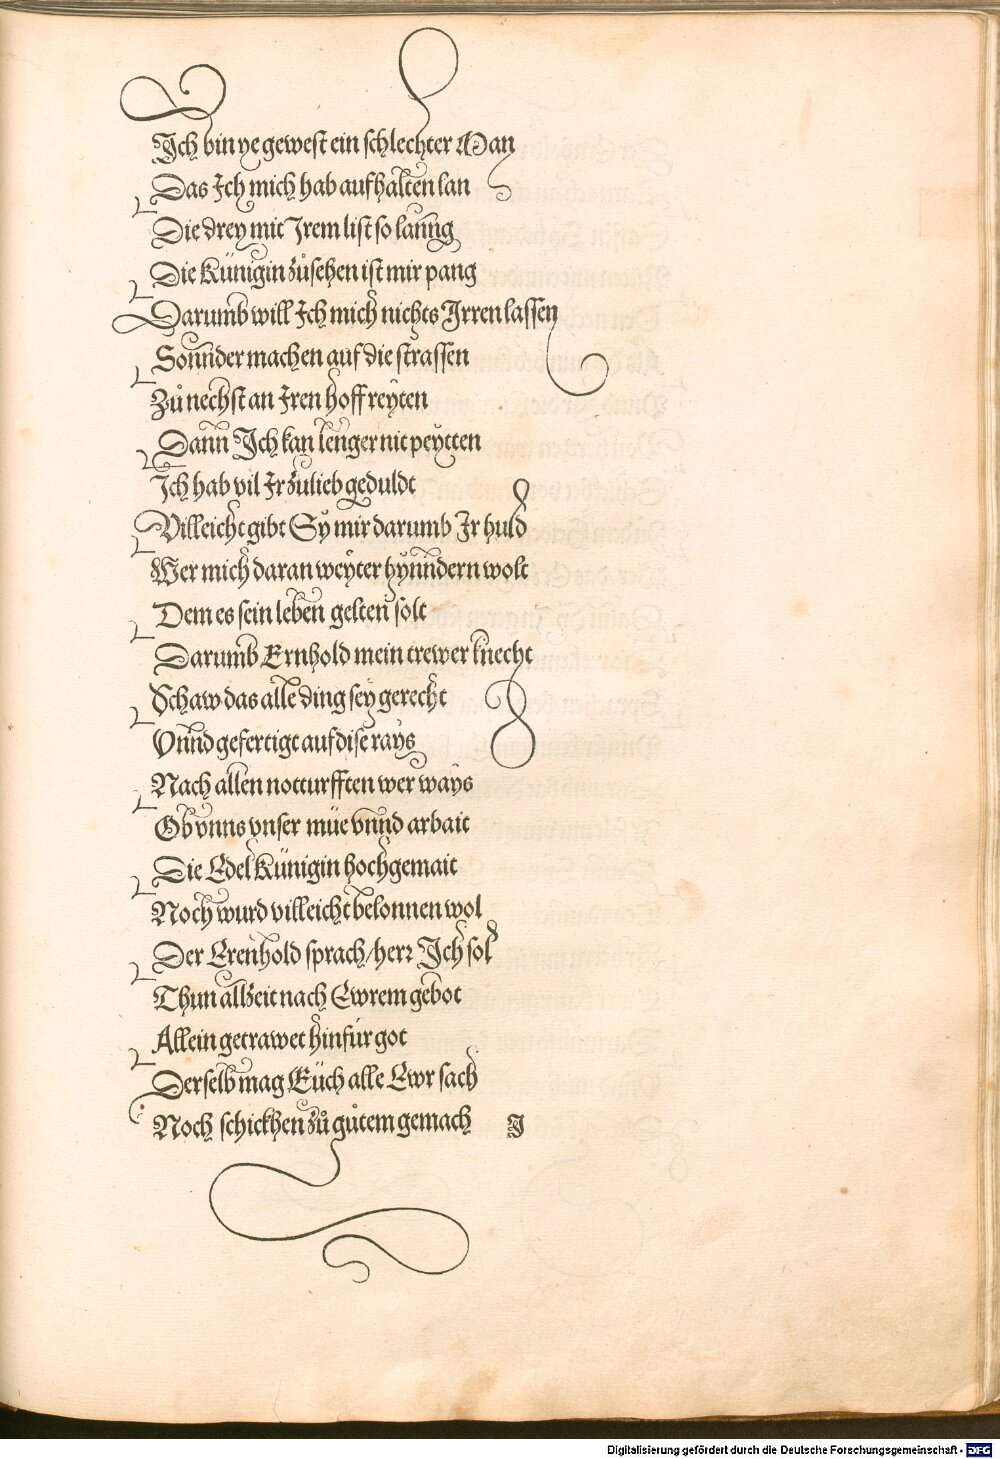 Ich bin ye gewest ein schlechter Man
Das Ich mich hab aufhalten lan
Die drey mit Irem list so lanng
Die Künigin zůsehen ist mir pang
Darumb will Ich mich nichts Irren lassen
Sonnder machen auf die strassen
Zů nechst an Iren hoff reyten
Dann Ich kan lenger nit peytten
Ich hab vil Ir zulieb geduldt
Villeicht gibt Sy mir darumb Ir huld
Wer mich daran weyter hynndern wolt
Dem es sein leben gelten solt
Darumb Ernhold mein trewer knecht
Schaw das alle ding sey gerecht
Vnnd gefertigt auf dise rays
Nach allen notturfften wer ways
Ob vnns vnser müe vnnd arbait
Die Edel Künigin hochgemait
Noch wurd villeicht belonnen wol
Der Erenhold sprach/herr Ich sol
Thun allzeit nach Ewrem gebot
Allein getrawet hinfür got
Derselb mag Eüch alle Ewr sach
Noch schickhen zů gůtem gemach J
Digitalisierung gefördert durch die Deutsche Forschungsgemeinschaft - DFG